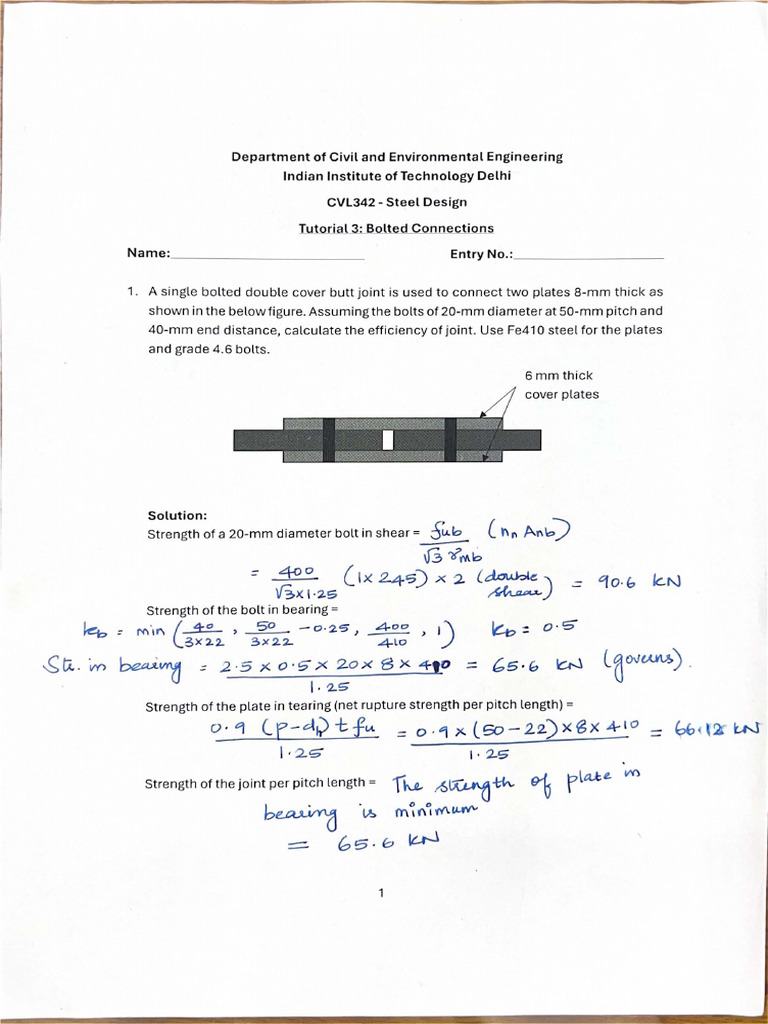 Department of Civil and Environmental Engineering
Indian Institute of Technology Delhi
CVL342 - Steel Design
Tutorial 3: Bolted Connections
Name:____________________ Entry No.:____________________
1. A single bolted double cover butt joint is used to connect two plates 8-mm thick as
shown in the below figure. Assuming the bolts of 20-mm diameter at 50-mm pitch and
40-mm end distance, calculate the efficiency of joint. Use Fe410 steel for the plates
and grade 4.6 bolts.
6 mm thick
cover plates
Solution:
Strength of a 20-mm diameter bolt in shear = fub/(√3 γmb) (nn Anb)
= 400/(√3×1.25) (1×245) × 2 (double shear) = 90.6 kN
Strength of the bolt in bearing =
kb = min (40/(3×22), 50/(3×22) - 0.25, 400/410, 1) kb = 0.5
Str. in bearing = (2.5 × 0.5 × 20 × 8 × 410)/1.25 = 65.6 kN (governs).
Strength of the plate in tearing (net rupture strength per pitch length) =
0.9 (p-dh) t fu/1.25 = 0.9 × (50-22) × 8 × 410/1.25 = 66.12 kN
Strength of the joint per pitch length = The strength of plate in
bearing is minimum
= 65.6 kN
1